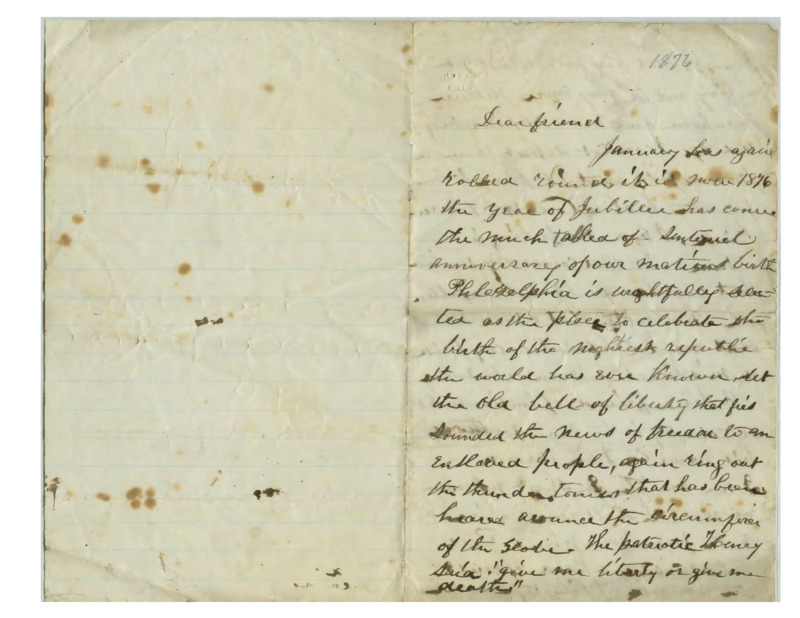 1876
Dear friend
January has again
rolled round, it is now 1876
the year of Jubillee has come
the much talked of - Sentenial
anniversarey of our nations birth
Philadelphia is wrightfulley selec-
ted as the place to celebrate the
birth of the mightiest republic
the world has ever known, let
the old bell of liberty that firs
sounded the news of freedom to an
Enslaved people, again ring out
the thunder tones that has been
heared arounce the circumfires
of the Globe. The patriotic Henry
said "give me liberty or give me
death"